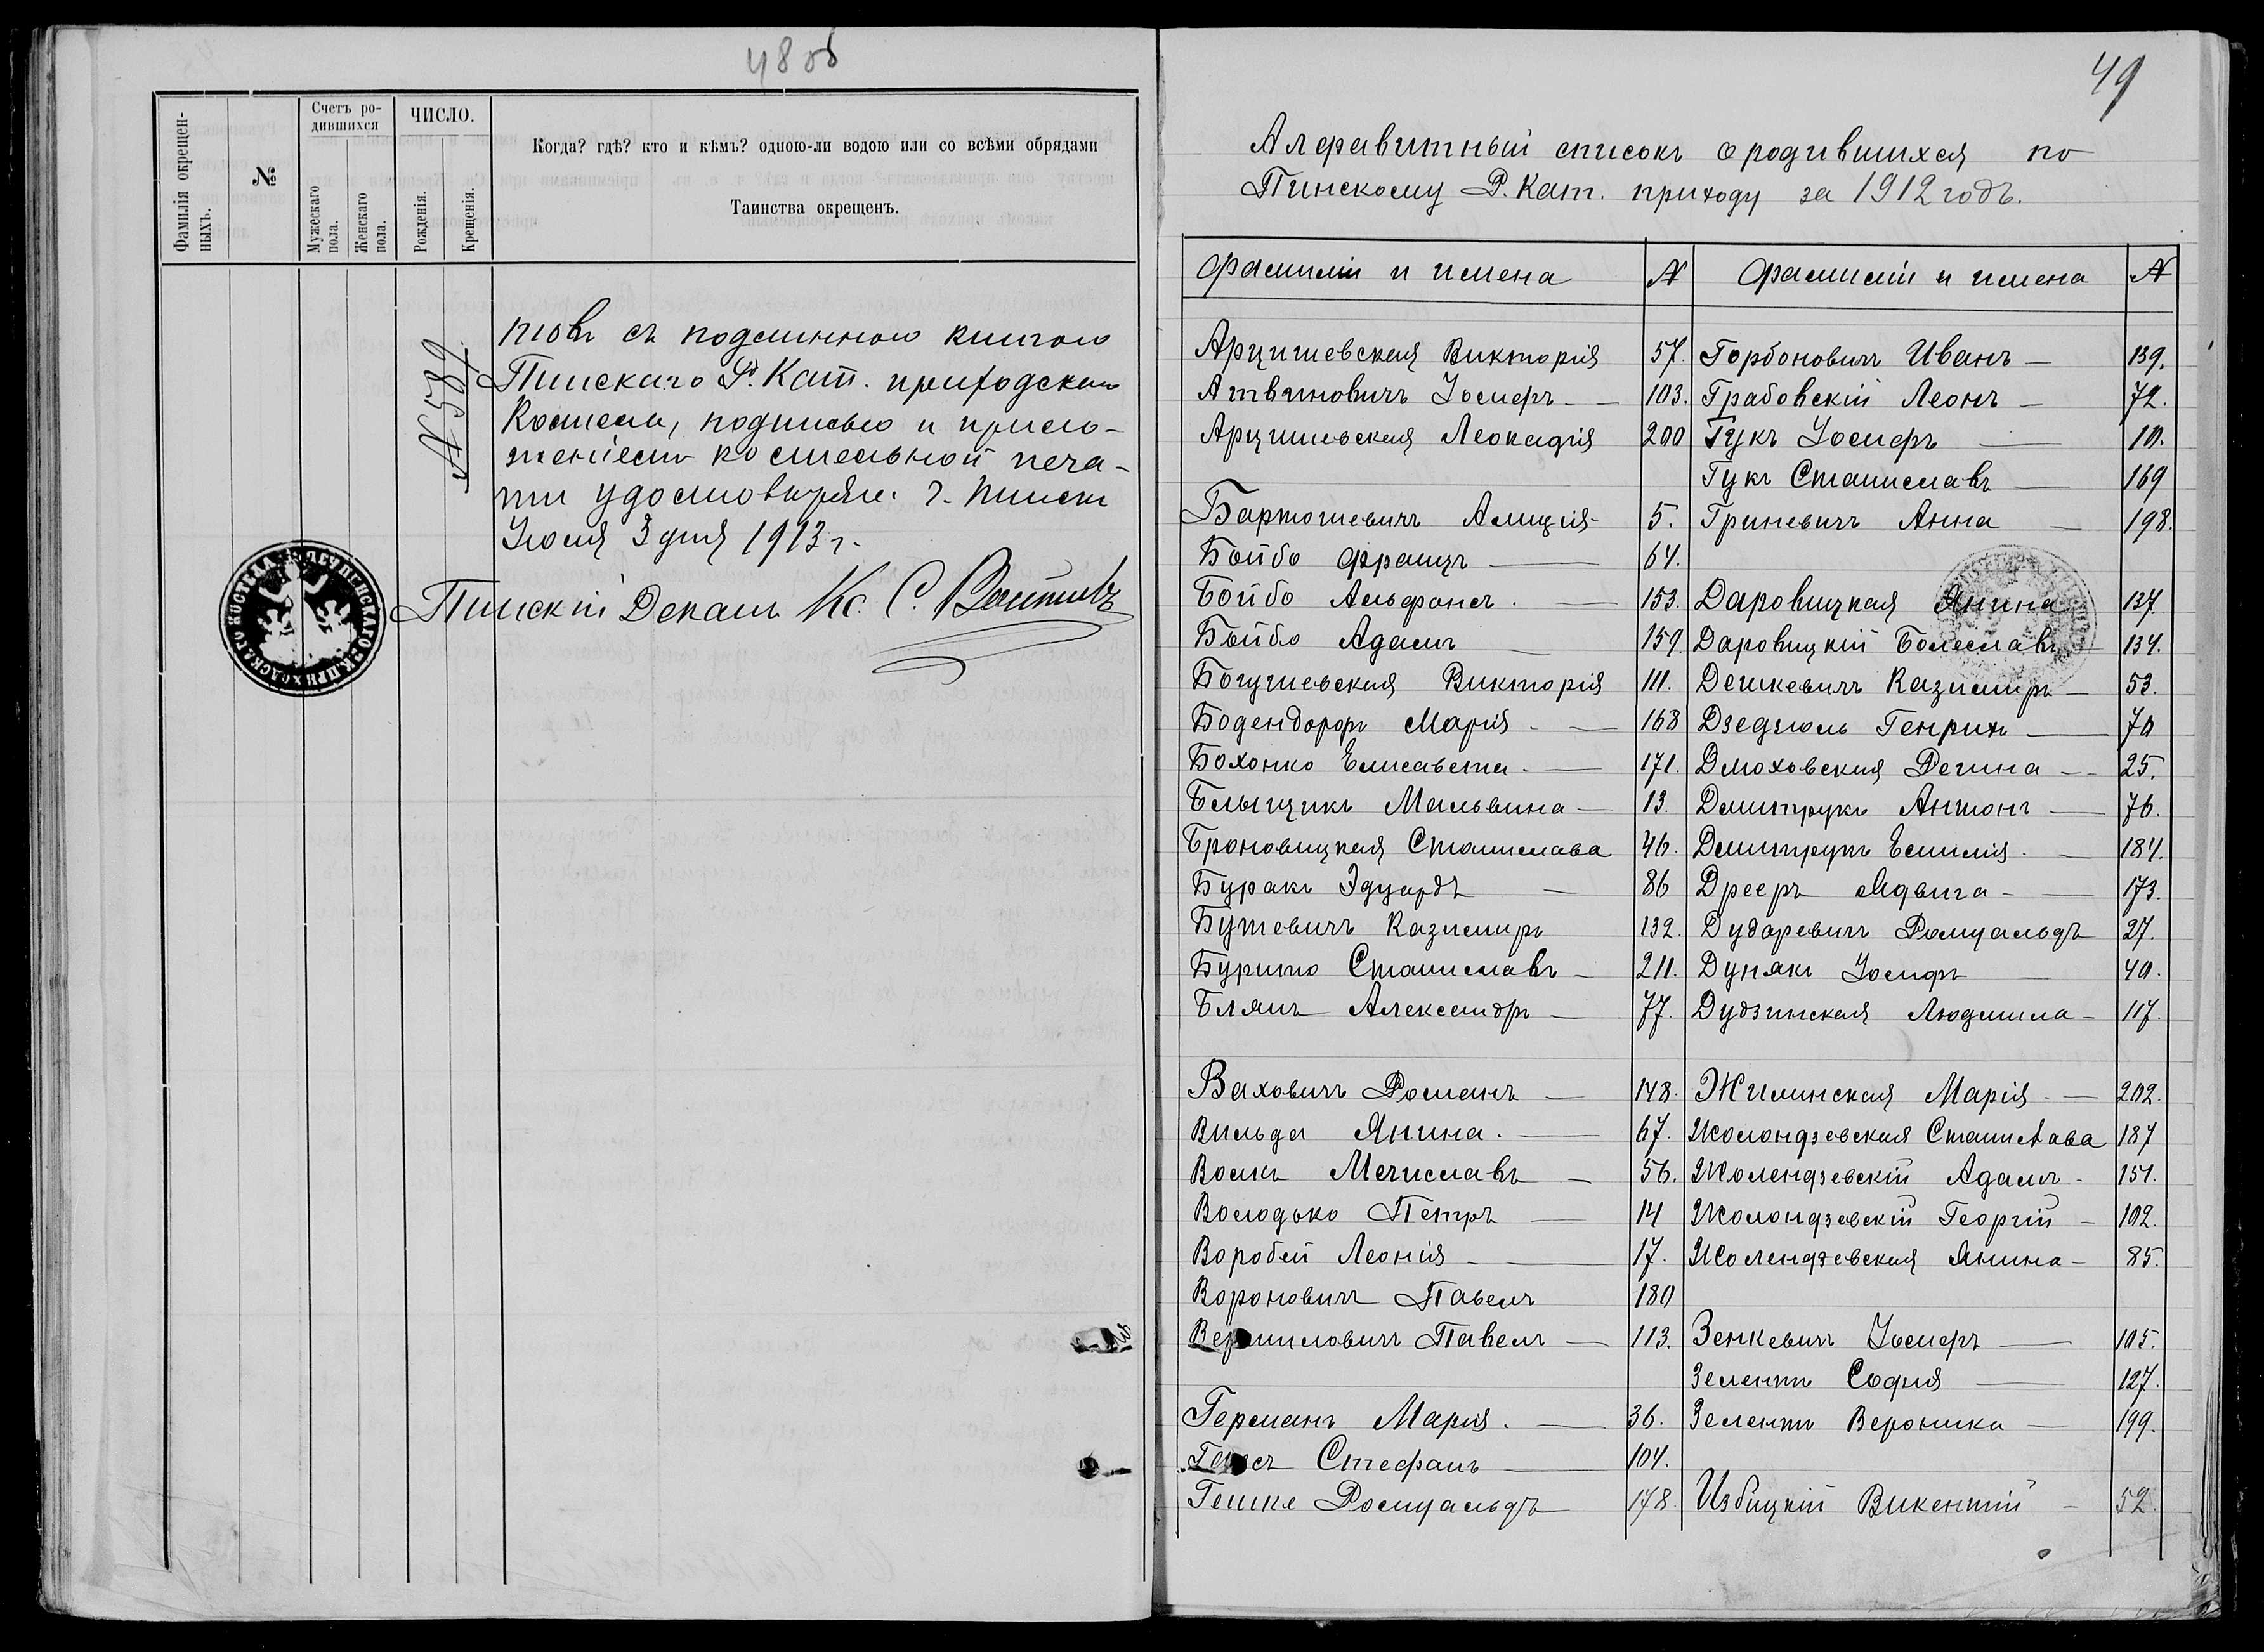 48 об
Фамилія окрещен-
ныхъ.
№
Счетъ ро-
дившихся
Мужескаго
пола.
Женскаго
пола.
ЧИСЛО.
Рожденія.
Крещенія.
Когда? гдѣ? кто и кѣмъ? одною-ли водою или со всѣми обрядами
Таинства окрещенъ.
№ 589
товъ съ подлинною книгою
Пинскаго Р. Кат. приходскаго
Костела, подписью и прило-
женіемъ костельной печа-
ти удостовѣряю. г. Пинскъ
Іюля 3 дня 1913 г.
Пинскій Деканъ Кс. С.
49
Алфавитный списокъ о родившихся по
Пинскому Р. Кат. приходу за 1912 годъ.
Фамиліи и имена №
Арцишевская Викторія 57.
Атвиновичъ Іосифъ 103.
Арцишевская Леокадія 200
Бартошевичъ Алиція 5.
Бойбо Францъ 64.
Бойбо Альфонсъ 153.
Бойбо Адамъ 159.
Богушевская Викторія 111.
Бодендорфъ Марія 168
Бохонко Елисавета 171.
Блыщикъ Мальвина 13.
Броновицкая Станислава 46.
Буракъ Эдуардъ 86
Бутевичъ Казимиръ 132.
Буритo Станиславъ 211.
Блямъ Александръ 77.
Ваховичъ Романъ 148.
Вильда Янина 67.
Волкъ Мечиславъ 56.
Володько Петръ 14
Воробей Леонія 17.
Вороновичъ Павелъ 180
Павелъ 113.
Германъ Марія 36.
Стефанъ 104.
Гешке Ромуальдъ 178.
Фамиліи и имена №
Горбоновичъ Иванъ 139.
Грабовскій Леонъ 72.
Гукъ Іосифъ 10.
Гукъ Станиславъ 169
Гриневичъ Анна 198.
Даровицкая Янина 137.
Даровицкій Болеславъ 134.
Дешкевичъ Казимиръ 53.
Дзедзюль Генрихъ 70
Дмоховская Регина 25.
Дмитрукъ Антонъ 76.
Дмитрукъ Емилія 184.
Дрееръ Ядвига 173.
Дударевичъ Ромуальдъ 27.
Дунякъ Іосифъ 40.
Дудзинская Людмила 117.
Жилинская Марія 202.
Жолондзевская Станислава 187
Жолендзевскій Адамъ 151.
Жолондзевскій Георгій 102.
Жолендзевская Янина 85.
Зенкевичъ Іосифъ 105.
Зелентъ Софія 127.
Зелентъ Вероника 199.
Избицкій Викентій 52.